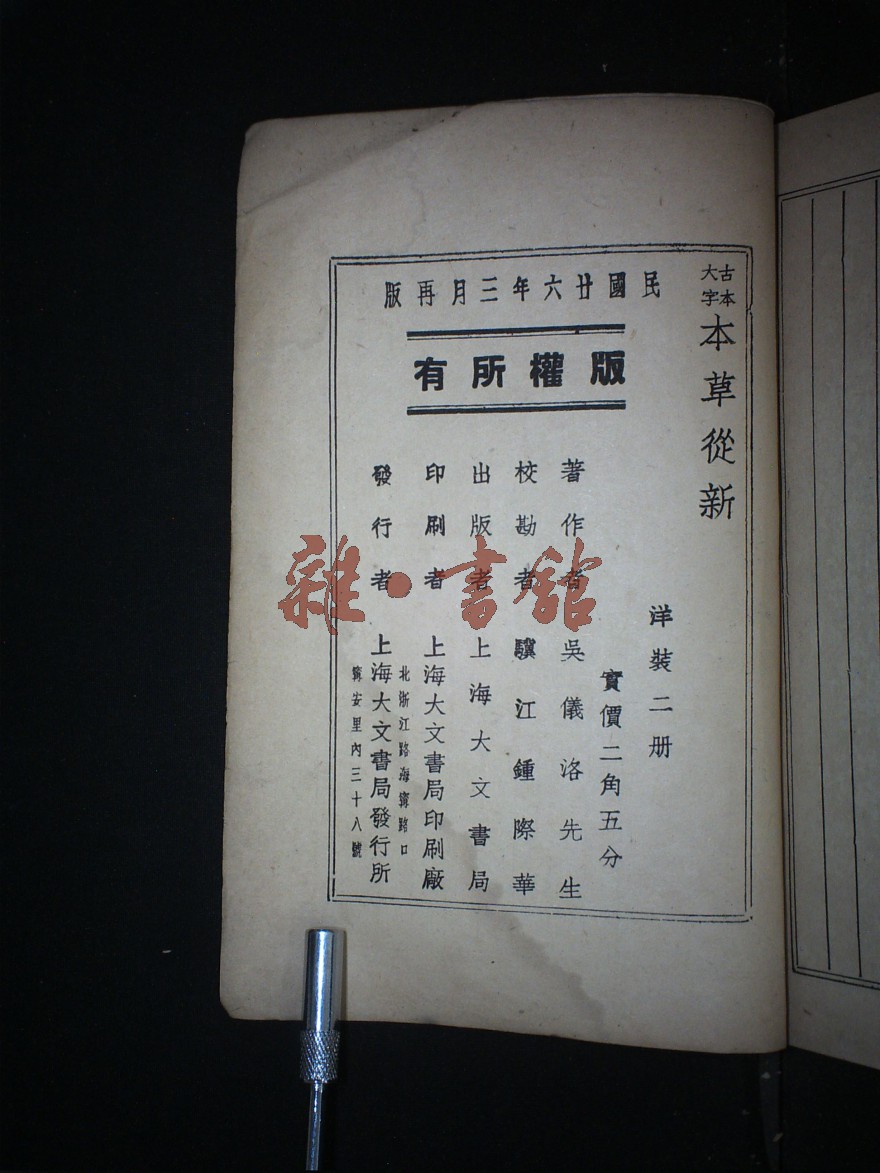 古本
大字
本草從新
民國廿六年三月再版
版權所有
洋裝二册
實價二角五分
著作者 吳儀洛先生
校勘者 驥江鍾際華
出版者 上海大文書局
印刷者 上海大文書局印刷廠
發行者 上海大文書局發行所
北浙江路海寧路口
寧安里內三十八號
雜·書館